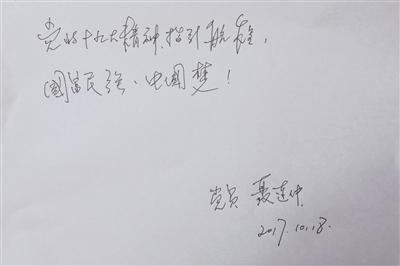 党的十九大精神,指引航程,
國富民强、中國梦!
党员 聂连
2017.10.18.